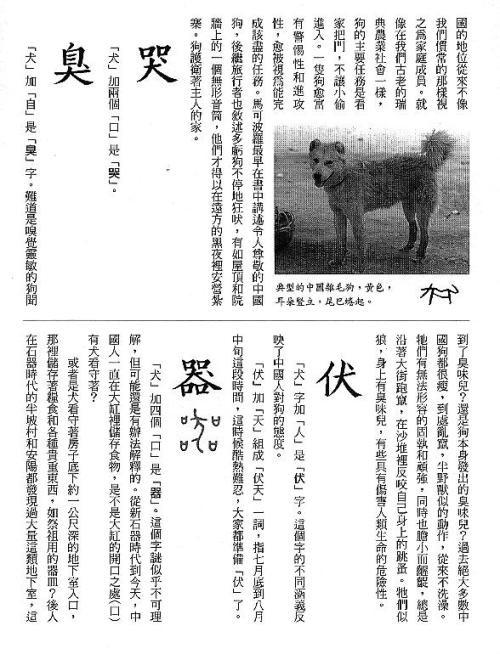 國的地位從來不像
我們慣常的那樣視
之為家庭成員。就
像在我們古老的瑞
典農業社會一樣，
狗的主要任務是看
家把門，不讓小偷
進入。一隻狗愈富
有警惕性和進攻
性，愈被視為能完
成該盡的任務。馬可波羅最早在書中講述令人尊敬的中國
狗，後繼旅行者也敘述多虧狗不停地狂吠，有如屋頂和院
牆上的一個無形音筒，他們才得以在遠方的黑夜裡安營紮
寨。狗護衛著主人的家。
典型的中國雜毛狗，黃色，
耳朵豎立，尾巴捲起。
哭
「犬」加兩個「口」是「哭」。
臭
「犬」加「自」是「臭」字。難道是嗅覺靈敏的狗聞
到了臭味兒？還是狗本身發出的臭味？過去絕大多數中
國狗都很瘦，到處亂竄，半野獸似的動作，從來不洗澡。
牠們有無法形容的固執和頑強，同時也膽小而齷齪，總是
沿著大街跑竄，在沙堆裡反咬自己身上的跳蚤。牠們似
狼，身上有臭味兒，有些具有傷害人類生命的危險性。
伏
「犬」字加「人」是「伏」字。這個字的不同涵義反
映了中國人對狗的態度。
「伏」加「天」組成「伏天」一詞，指七月底到八月
中旬這段時間，這時候酷熱難忍，大家都準備「伏」了。
器
「犬」加四個「口」是「器」。這個字謎似乎不可理
解，但可能還是有辦法解釋的。從新石器時代到今天，中
國人一直在大缸裡儲存食物，是不是大缸的開口之處(口)
有犬看守著？
或者是犬看守著房子底下約一公尺深的地下室入口，
那裡儲存著糧食和各種貴重東西，如祭祖用的器皿？後人
在石器時代的半坡村和安陽都發現過大量這類地下室，這